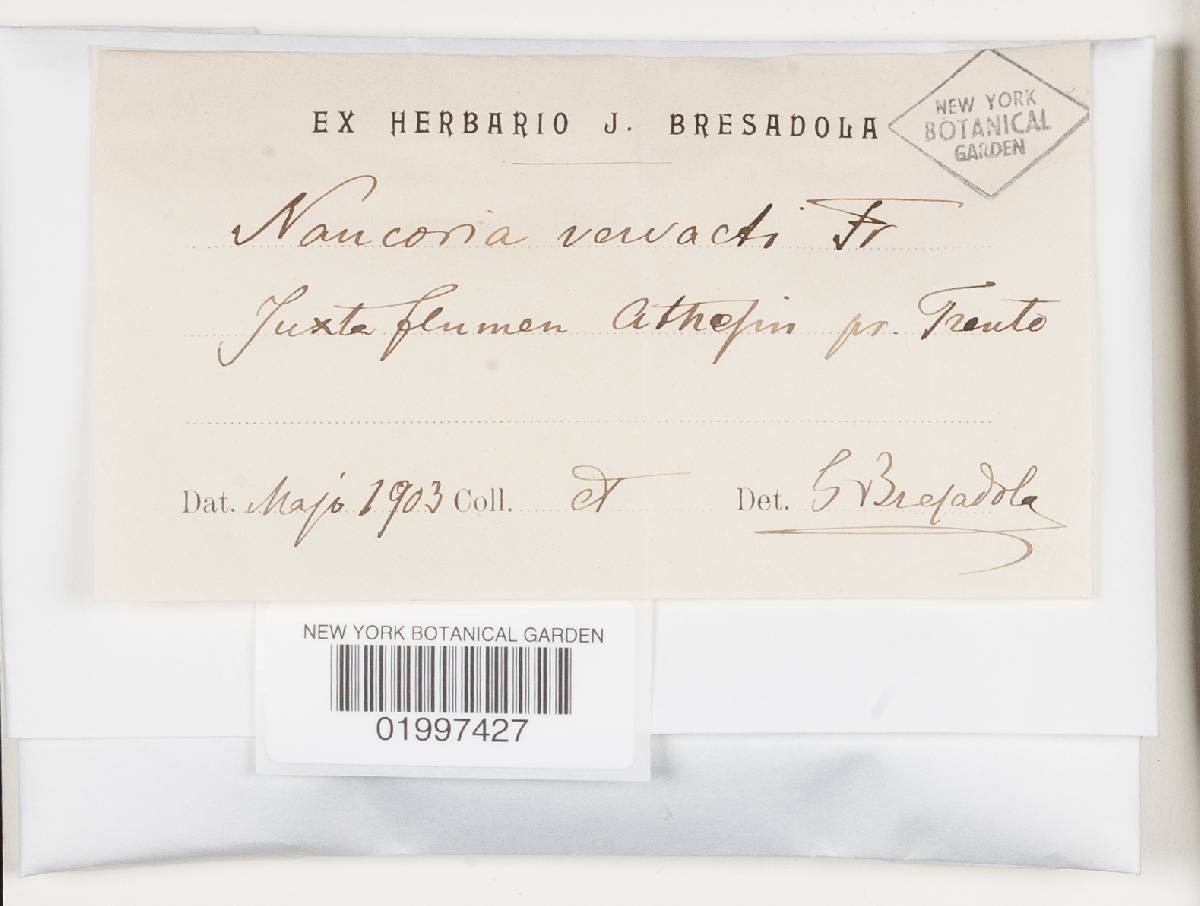 EX HERBARIO J. BRESADOLA
NEW YORK
BOTANICAL
GARDEN
Naucoria vervacti Fr
Juxta flumen Athesin pr. Trento
Dat. Majo 1903 Coll. et Det. G Bresadola
NEW YORK BOTANICAL GARDEN
01997427